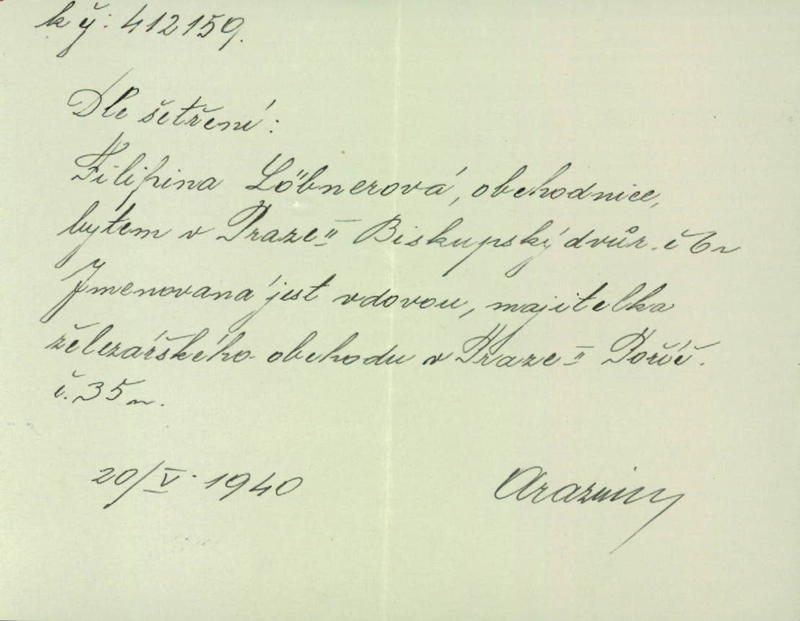 k čj: 412159.
Dle šetření:
Filipina Löbnerová, obchodnice,
bytem v Praze II Biskupský dvůr. č
Jmenovaná jest vdovou, majitelka
železářského obchodu v Praze II Poříč.
č. 35 n.
20/V. 1940